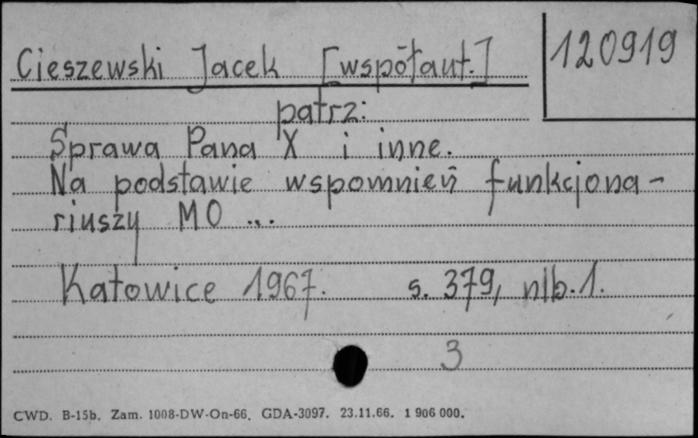 Cieszewski Jacek [współaut.]
120919
patrz:
Sprawa Pana X i inne.
Na podstawie wspomnień funkcjona-
riuszy MO ...
Katowice 1967. s. 379, nlb. 1.
3
CWD. B-15b. Zam. 1008-DW-On-66. GDA-3097. 23.11.66. 1 906 000.